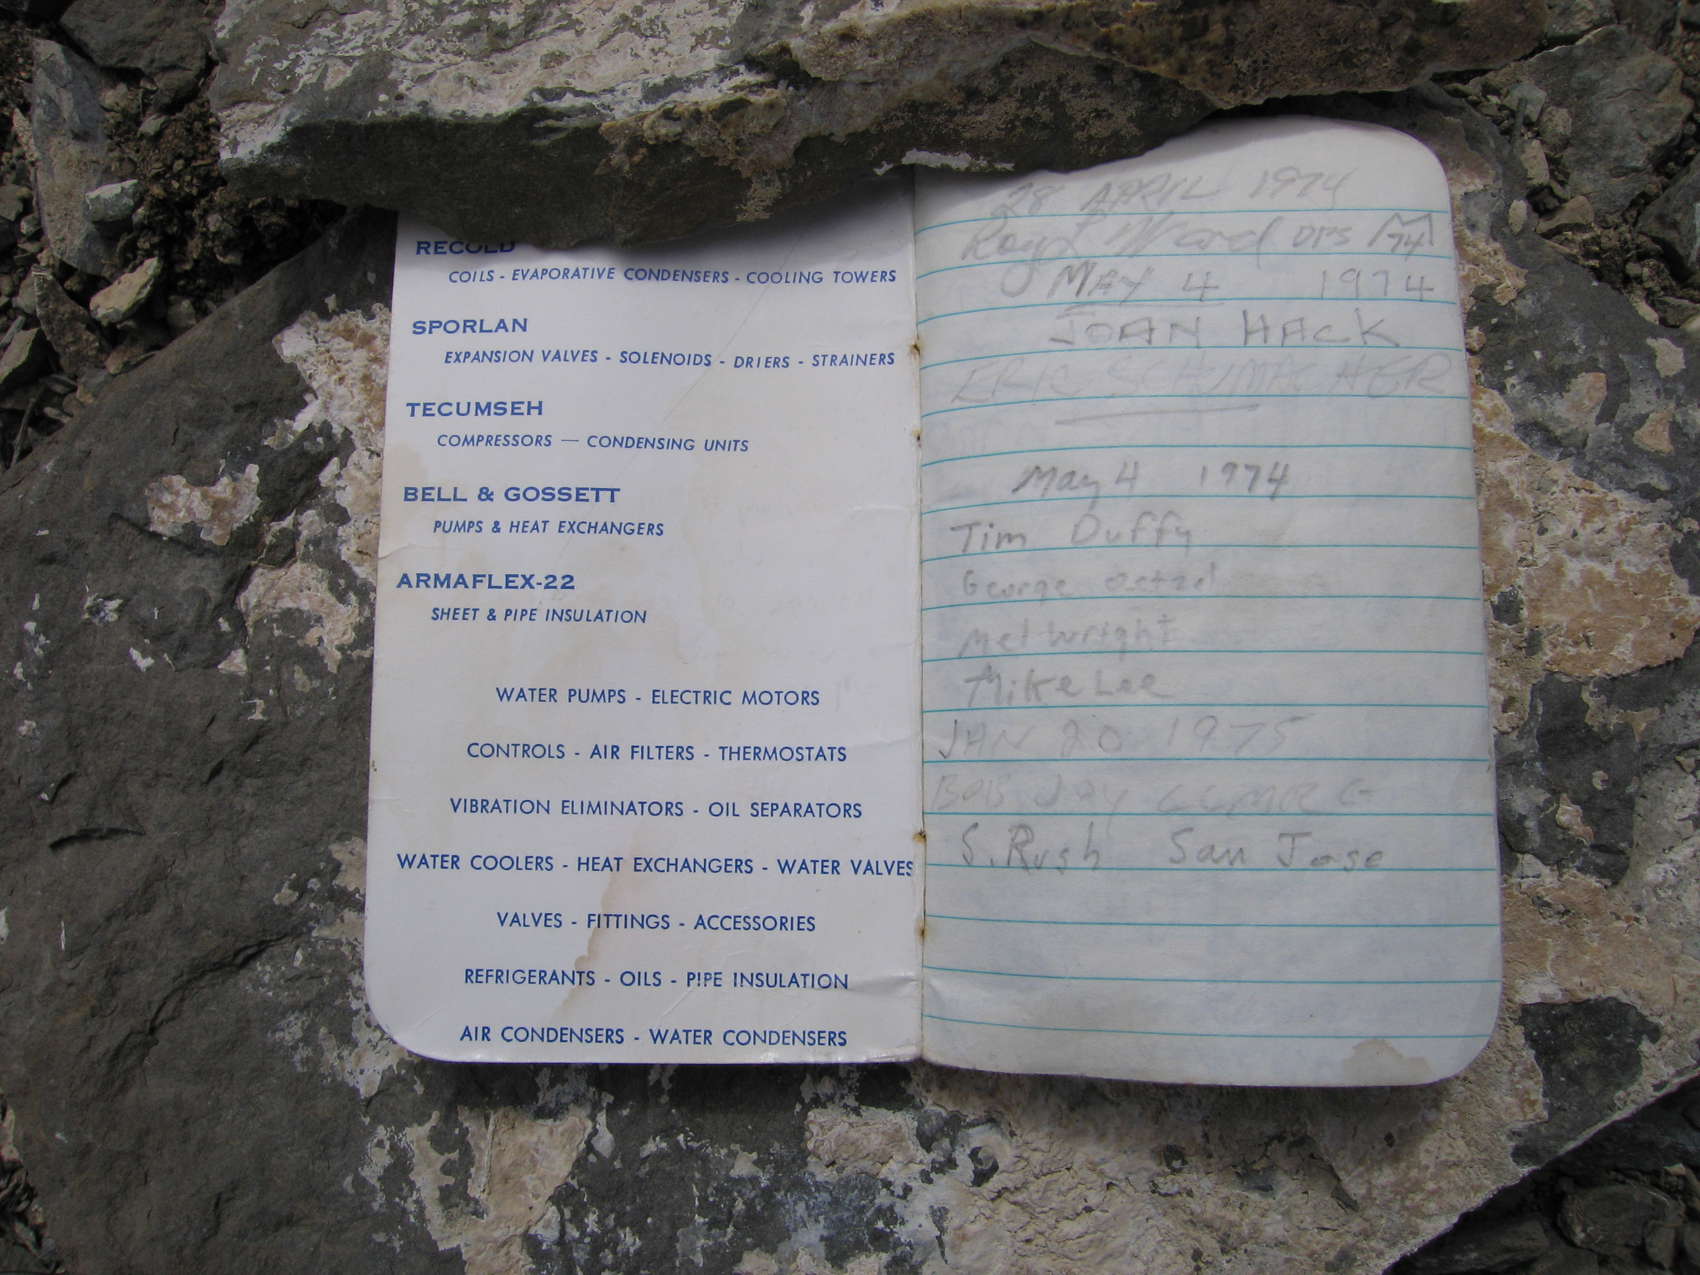 RECOLD
COILS - EVAPORATIVE CONDENSERS - COOLING TOWERS
SPORLAN
EXPANSION VALVES - SOLENOIDS - DRIERS - STRAINERS
TECUMSEH
COMPRESSORS — CONDENSING UNITS
BELL & GOSSETT
PUMPS & HEAT EXCHANGERS
ARMAFLEX-22
SHEET & PIPE INSULATION
WATER PUMPS - ELECTRIC MOTORS
CONTROLS - AIR FILTERS - THERMOSTATS
VIBRATION ELIMINATORS - OIL SEPARATORS
WATER COOLERS - HEAT EXCHANGERS - WATER VALVES
VALVES - FITTINGS - ACCESSORIES
REFRIGERANTS - OILS - PIPE INSULATION
AIR CONDENSERS - WATER CONDENSERS
28 APRIL 1974
DPS 74
MAY 4 1974
JOAN HACK
ERIC SCHUMACHER
May 4 1974
Tim Duffy
George Oetzel
Mel Wright
Mike Lee
JAN 20 1975
BOB JAY
S. Rush San Jose